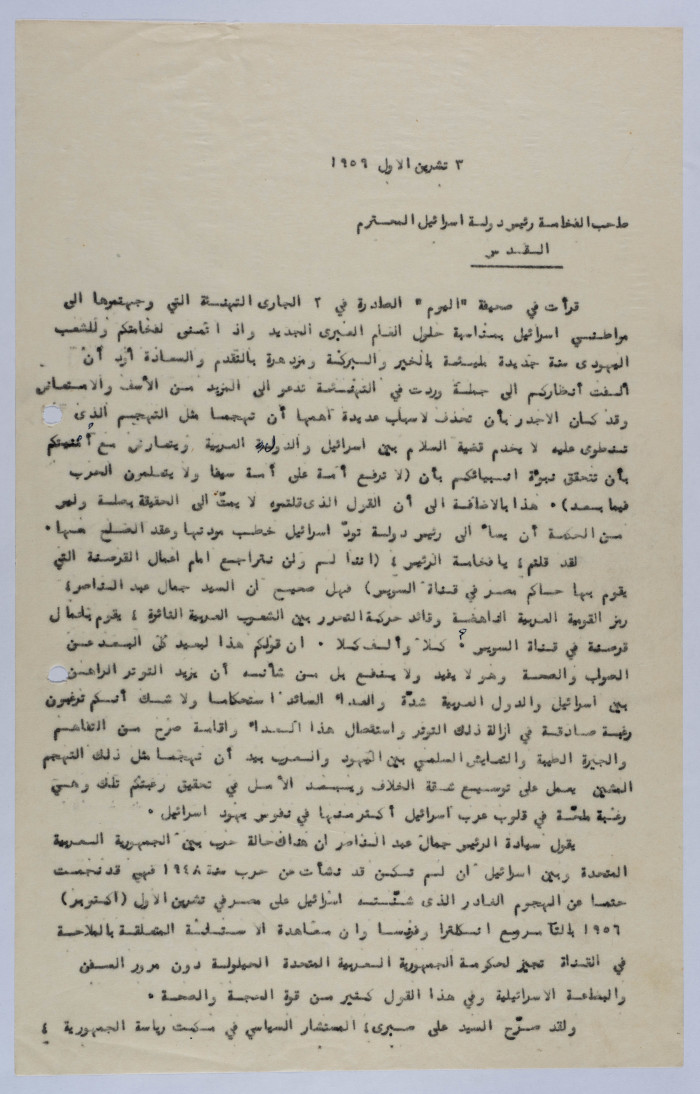 ٣ تشرين الاول ١٩٥٩
صاحب الفخامة رئيس دولة اسرائيل المحترم
القدس
قرأت في صحيفة "اليوم" الصادرة في ٢ الجارى التهنئة التي وجهتموها الى
مواطني اسرائيل بمناسبة حلول العام العبرى الجديد واذ اتمنى لفخامتكم وللشعب
اليهودى سنة جديدة مليئة بالخير والبركة ومزدهرة بالتقدم والسعادة أرى أن
ألفت أنظاركم الى جملة وردت في التهنئة تدعو الى المزيد من الأسف والامتعاض
وقد كان الاجدر بأن تحذف لاسباب عديدة أهمها أن تهجما مثل التهجم الذى
تنطوى عليه لا يخدم قضية السلام بين اسرائيل والدول العربية ويتعارض مع أمنيتكم
بأن تتحقق نبوءة انبيائكم بأن (لا ترفع أمة على أمة سيفا ولا يتعلمون الحرب
فيما بعد). هذا بالاضافة الى أن القول الذى قلتموه لا يمتّ الى الحقيقة بصلة وليس
من الحكمة أن يساء الى رئيس دولة تودّ اسرائيل خطب مودتها وعقد الصلح معها.
لقد قلتم، يا فخامة الرئيس، (اننا لم ولن نتراجع امام اعمال القرصنة التي
يقوم بها حاكم مصر في قناة السويس) فهل صحيح ان السيد جمال عبد الناصر،
رمز القومية العربية الناهضة وقائد حركة التحرر بين الشعوب العربية الثائرة، يقوم باعمال
قرصنة في قناة السويس؟ كلا وألف كلا. ان قولكم هذا لبعيد كلّ البعد عن
الصواب والصحة وهو لا يفيد ولا ينفع بل من شأنه أن يزيد التوتر الراهن
بين اسرائيل والدول العربية شدّة والعداء السائد استحكاما ولا شك أنكم ترغبون
رغبة صادقة في ازالة ذلك التوتر واستئصال هذا العداء واقامة صرح من التفاهم
والجيرة الطيبة والتعايش السلمي بين اليهود والعرب بيد أن تهجما مثل ذلك التهجم
المشين يعمل على توسيع شقة الخلاف ويبعد الأمل في تحقيق رغبتكم تلك وهي
رغبة ملحّة في قلوب عرب اسرائيل أكثر منها في نفوس يهود اسرائيل.
يقول سيادة الرئيس جمال عبد الناصر ان هناك حالة حرب بين الجمهورية العربية
المتحدة وبين اسرائيل ان لم تكن قد نشأت عن حرب سنة ١٩٤٨ فهي قد نجمت
حتما عن الهجوم الغادر الذى شنّته اسرائيل على مصر في تشرين الاول (اكتوبر)
١٩٥٦ بالتآمر مع انكلترا وفرنسا وان معاهدة الاستانة المتعلقة بالملاحة
في القناة تجيز لحكومة الجمهورية العربية المتحدة الحيلولة دون مرور السفن
والبضاعة الاسرائيلية وفي هذا القول كثير من قوة الحجة والصحة.
ولقد صرّح السيد على صبرى، المستشار السياسي في مكتب رياسة الجمهورية،